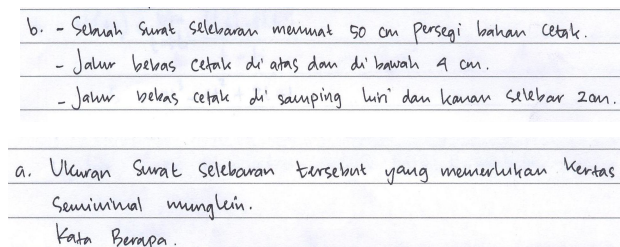 b. - Sebuah surat selebaran memuat 50 cm persegi bahan cetak.
- Jalur bebas cetak di atas dan di bawah 4 cm.
- Jalur bebas cetak di samping kiri dan kanan selebar 2cm.
a. Ukuran surat selebaran tersebut yang memerlukan kertas
seminimal mungkin.
Kata Berapa.